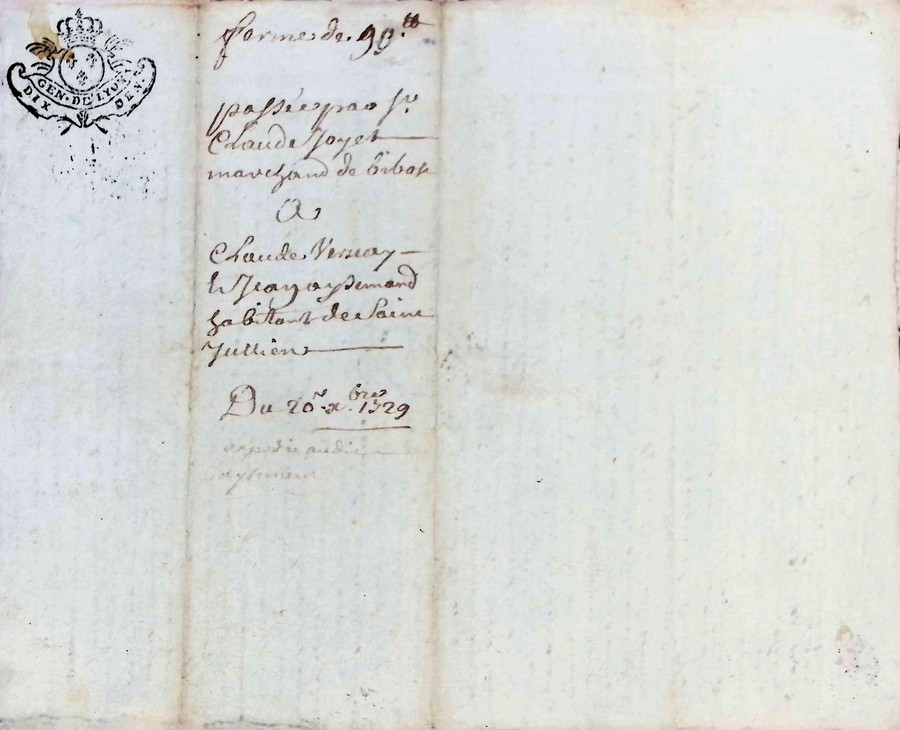 GEN. DE LYON
DIX DEN.
ferme de 90ᵗᵗ
passée par Sʳ
Claude Joyet
marchand de
A
Claude Vernay
& Jean aysemard
habitants de Saint
Jullien
Du 20ᵉ xbre 1729
expedié audit